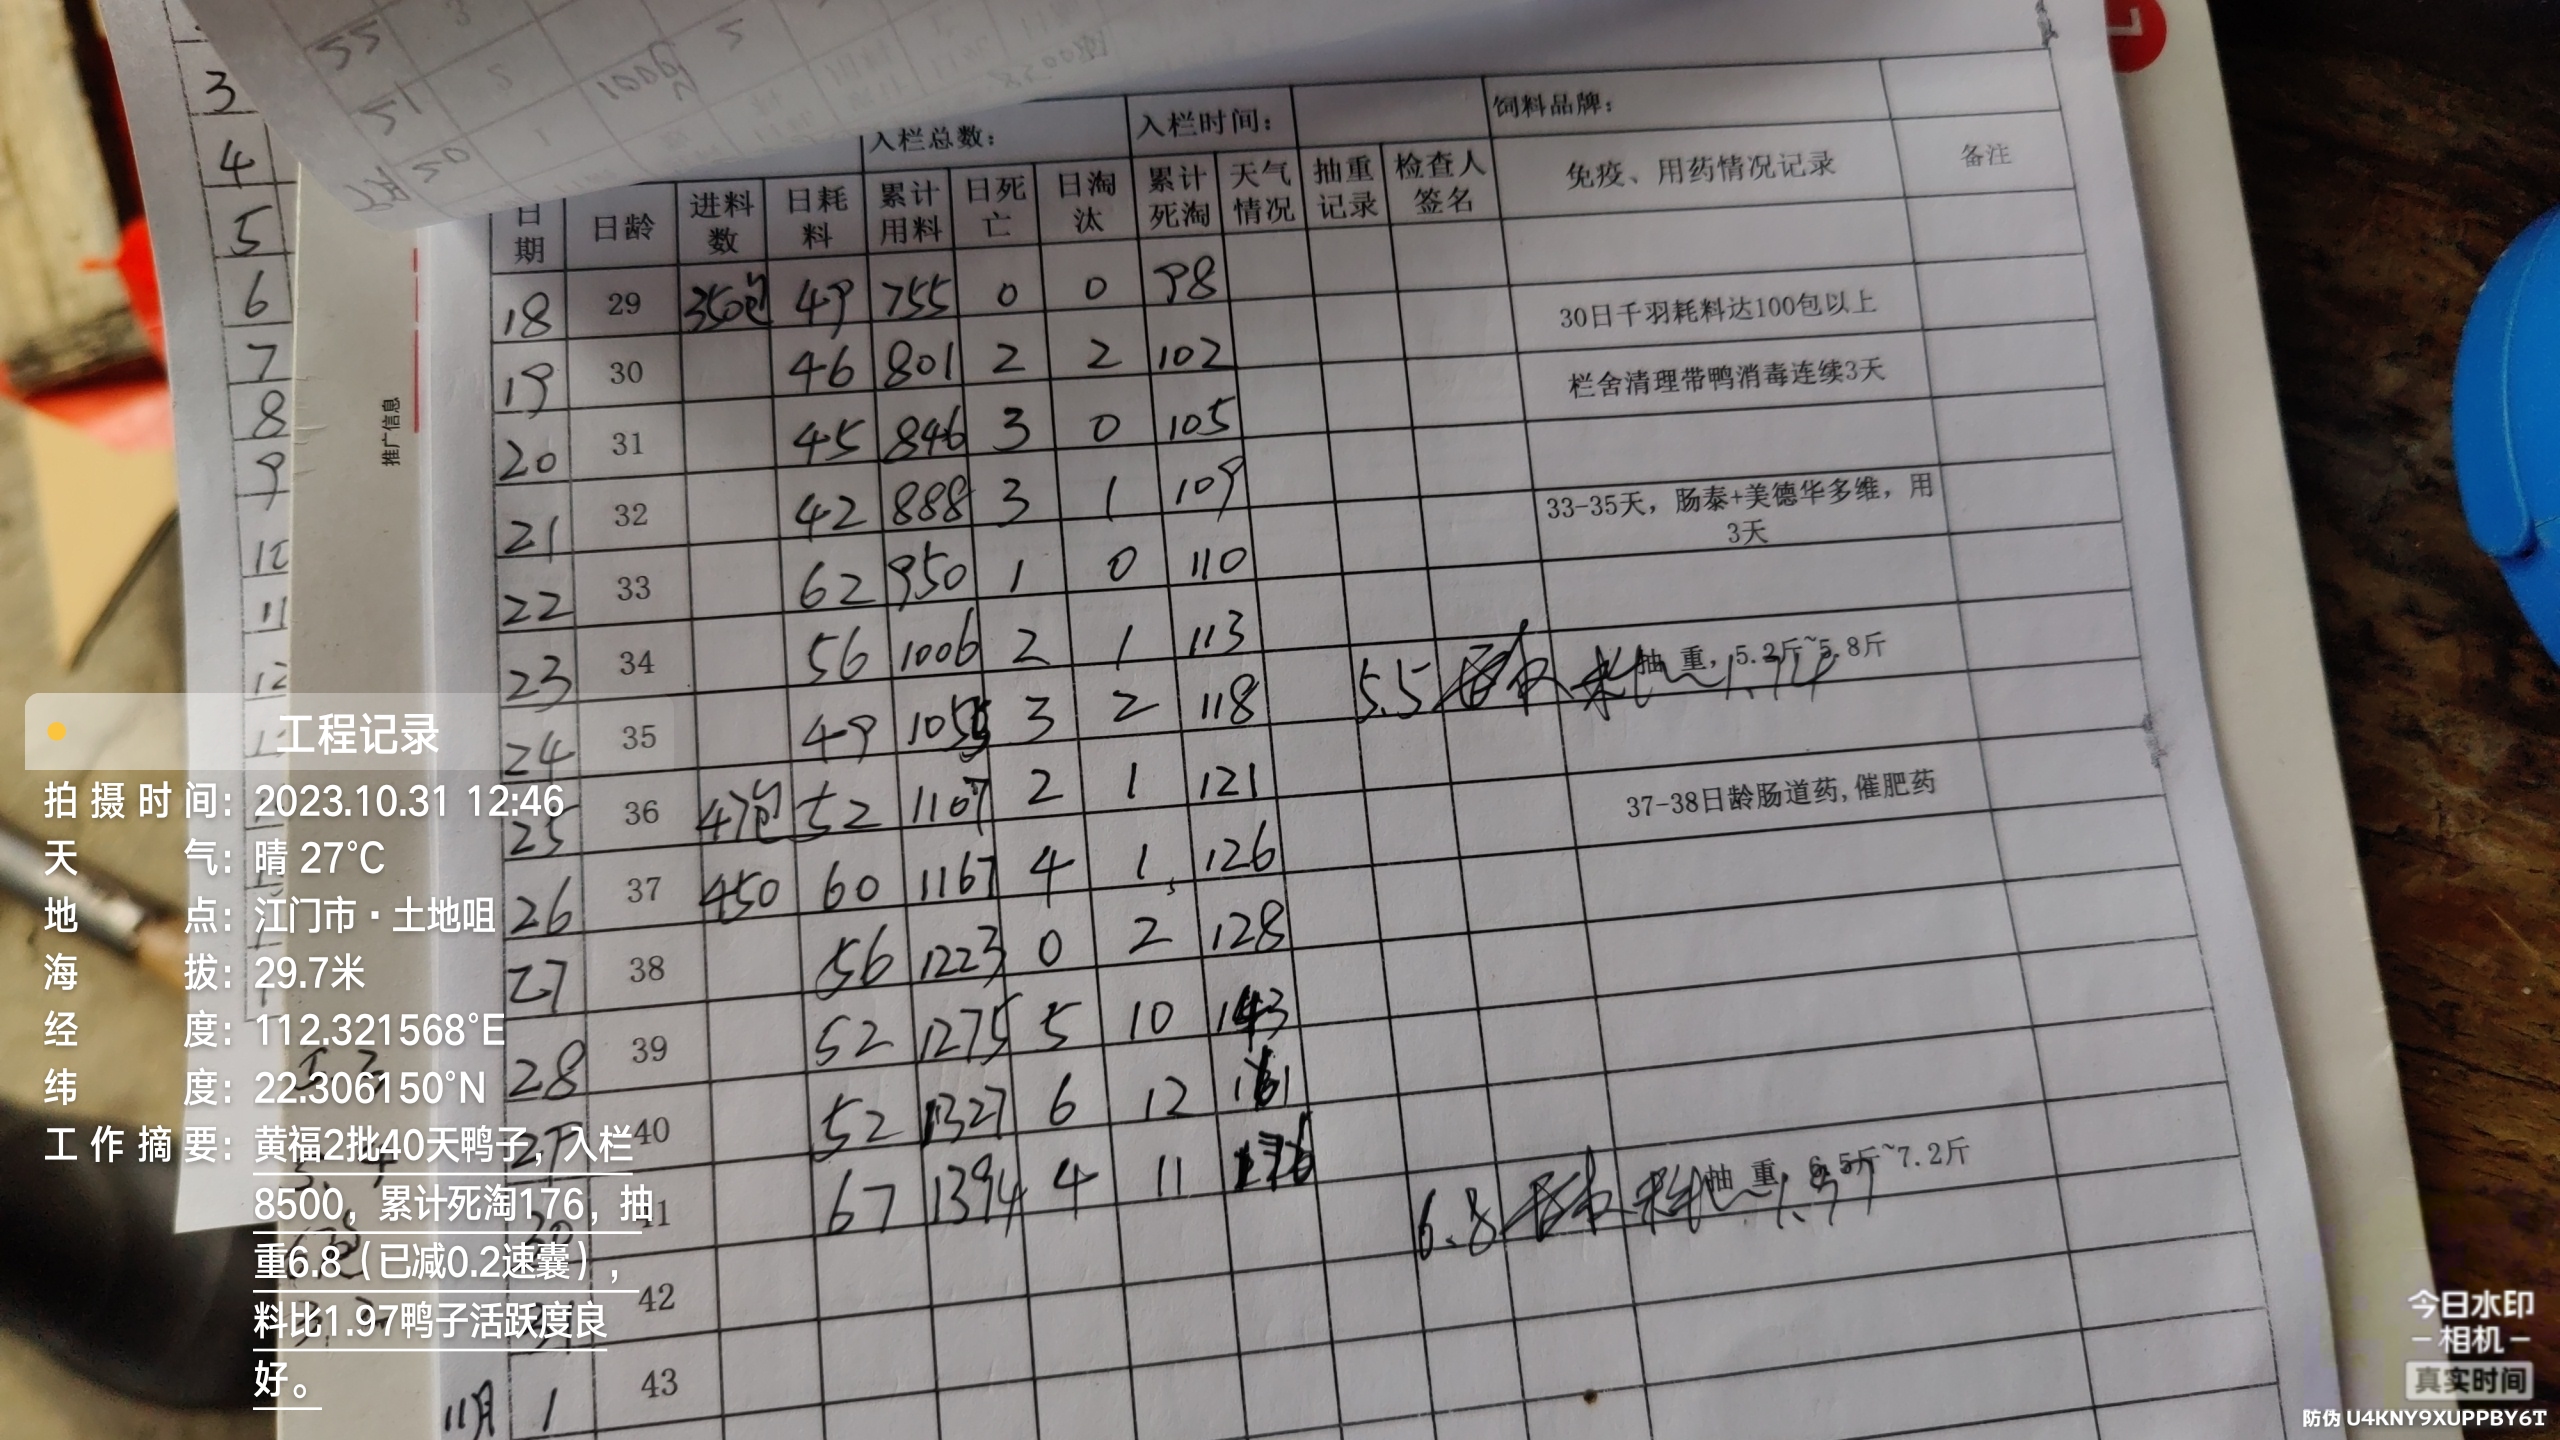 入栏总数： 入栏时间： 饲料品牌：
日期 日龄 进料数 日耗料 累计用料 日死亡 日淘汰 累计死淘 天气情况 抽重记录 检查人签名 免疫、用药情况记录 备注
18 29 350包 49 755 0 0 98
30日千羽耗料达100包以上
19 30 46 801 2 2 102
栏舍清理带鸭消毒连续3天
20 31 45 846 3 0 105
21 32 42 888 3 1 109
33-35天，肠泰+美德华多维，用3天
22 33 62 950 1 0 110
23 34 56 1006 2 1 113
抽 重，5.2斤~5.8斤
24 35 49 1055 3 2 118 5.5
25 36 47包 52 1107 2 1 121
37-38日龄肠道药,催肥药
26 37 450 60 1167 4 1 126
27 38 56 1223 0 2 128
28 39 52 1275 5 10 143
40 52 1327 6 12 161
抽 重 6.5斤~7.2斤
41 67 1394 4 11 176 6.8
42
43
11月 1
3
4
5
6
7
8
9
10
11
12
推广信息
工程记录
拍摄时间：2023.10.31 12:46
天气：晴 27°C
地点：江门市·土地咀
海拔：29.7米
经度：112.321568°E
纬度：22.306150°N
工作摘要：黄福2批40天鸭子，入栏
8500，累计死淘176，抽
重6.8（已减0.2速囊），
料比1.97鸭子活跃度良
好。
今日水印
-相机-
真实时间
防伪 U4KNY9XUPPBY6T